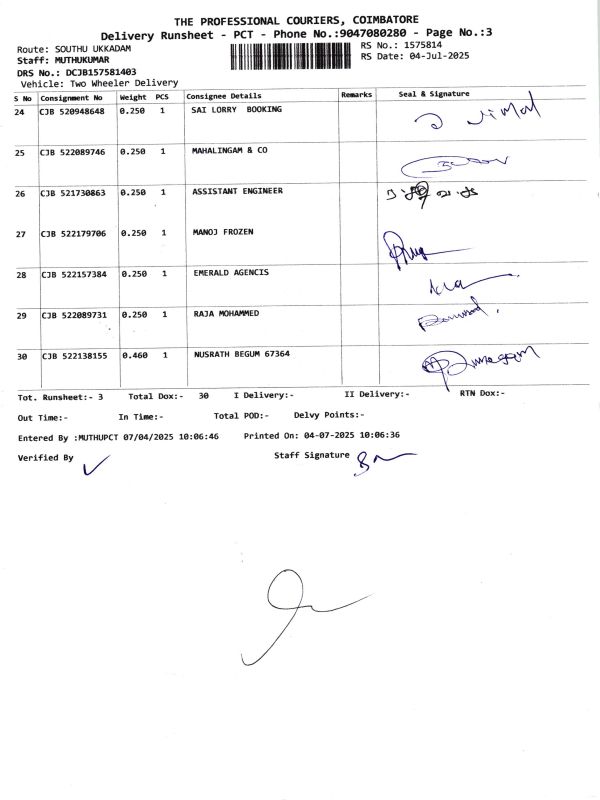 THE PROFESSIONAL COURIERS, COIMBATORE
Delivery Runsheet - PCT - Phone No.:9047080280 - Page No.:3
Route: SOUTHU UKKADAM
RS No.: 1575814
Staff: MUTHUKUMAR
RS Date: 04-Jul-2025
DRS No.: DCJB157581403
Vehicle: Two Wheeler Delivery
S No Consignment No Weight PCS Consignee Details Remarks Seal & Signature
24 CJB 520948648 0.250 1 SAI LORRY BOOKING
25 CJB 522089746 0.250 1 MAHALINGAM & CO
26 CJB 521730863 0.250 1 ASSISTANT ENGINEER
27 CJB 522179706 0.250 1 MANOJ FROZEN
28 CJB 522157384 0.250 1 EMERALD AGENCIS
29 CJB 522089731 0.250 1 RAJA MOHAMMED
30 CJB 522138155 0.460 1 NUSRATH BEGUM 67364
Tot. Runsheet:- 3 Total Dox:- 30 I Delivery:- II Delivery:- RTN Dox:-
Out Time:- In Time:- Total POD:- Delvy Points:-
Entered By :MUTHUPCT 07/04/2025 10:06:46 Printed On: 04-07-2025 10:06:36
Verified By Staff Signature